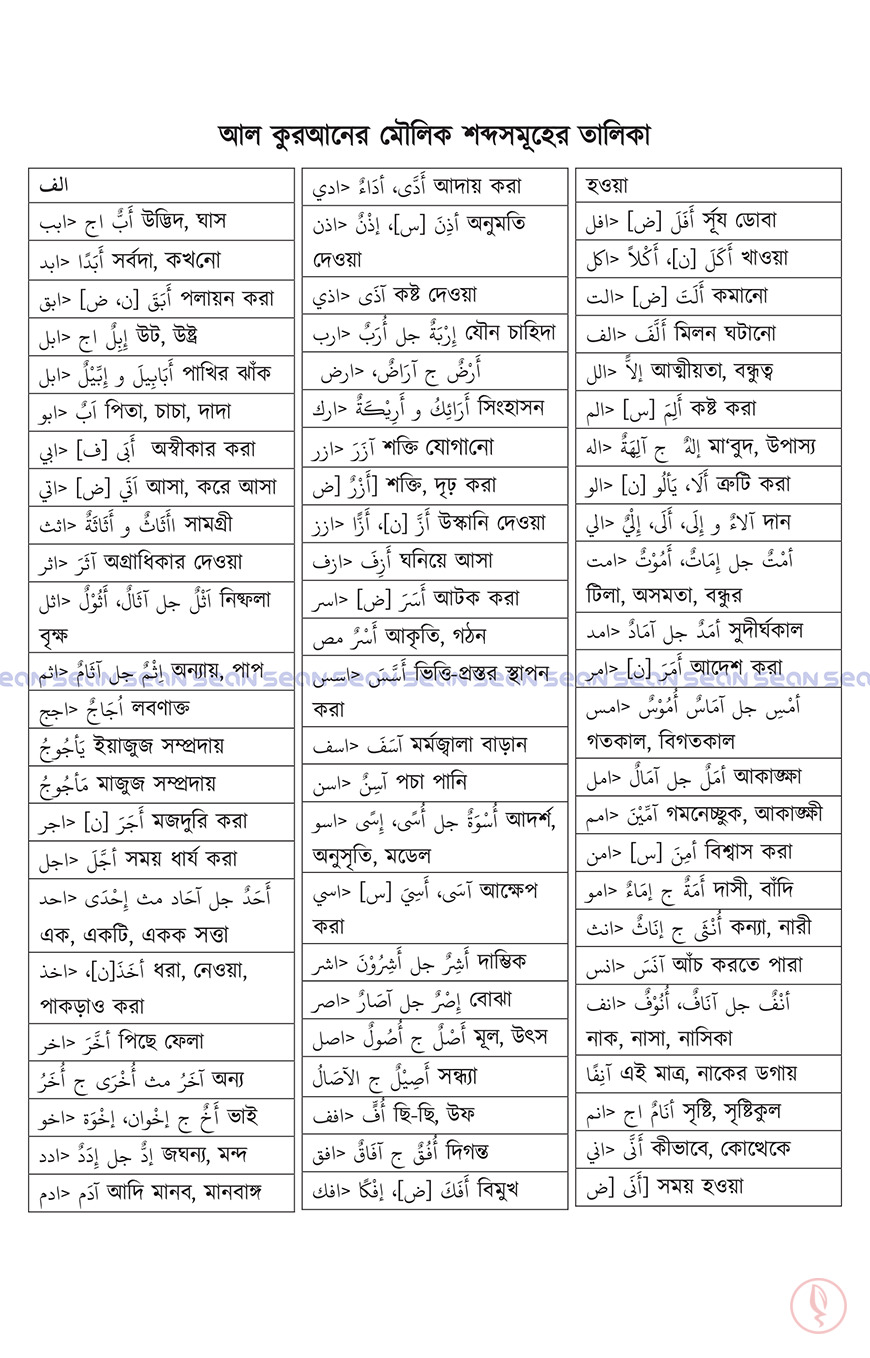 আল কুরআনের মৌলিক শব্দসমূহের তালিকা
الف
ابب> أَبٌّ اج উদ্ভিদ, ঘাস
ابد> أَبَدًا সর্বদা, কখনো
ابق> أَبَقَ [ن، ض] পলায়ন করা
ابل> إِبِلٌ اج উট, উষ্ট্র
ابل> أَبَابِيلَ و إِبِّيْلٌ পাখির ঝাঁক
ابو> اَبٌ পিতা, চাচা, দাদা
ابي> أَبَى [ف] অস্বীকার করা
اتي> اَتَى [ض] আসা, করে আসা
اثث> اأَثَاثٌ و أَثَاثَةٌ সামগ্রী
اثر> آثَرَ অগ্রাধিকার দেওয়া
اثل> اَثْلٌ جل آثَالٌ، أَثُوْلٌ নিষ্ফলা
বৃক্ষ
اثم> إِثْمٌ جل آثَامٌ অন্যায়, পাপ
اجج> أُجَاجٌ লবণাক্ত
يَأجُوجُ ইয়াজুজ সম্প্রদায়
مَأجُوجُ মাজুজ সম্প্রদায়
اجر> أَجَرَ [ن] মজদুরি করা
اجل> أجَّلَ সময় ধার্য করা
احد> أَحَدٌ جل آحَاد مث إِحْدَى
এক, একটি, একক সত্তা
اخذ> أخَذَ[ن]، ধরা, নেওয়া,
পাকড়াও করা
اخر> أخَّرَ পিছে ফেলা
آخَرُ مث أُخْرَى ج أُخَرُ অন্য
اخو> أَخٌ ج إخْوان، إخْوَة ভাই
ادد> إدٌّ جل إدَدٌ জঘন্য, মন্দ
ادم> آدَم আদি মানব, মানবাঙ্গ
ادي> أَدَّى، أدَاءٌ আদায় করা
اذن> أذِنَ [س]، إذْنٌ অনুমতি
দেওয়া
اذي> آذَى কষ্ট দেওয়া
ارب> إِرْبَةٌ جل أُرَبٌ যৌন চাহিদা
ارض> أَرْضٌ ج آرَاضٌ،
ارك> أَرَائِكُ و أَرِيْكَةٌ সিংহাসন
ازر> آزَرَ শক্তি যোগানো
أَزْرٌ [ض] শক্তি, দৃঢ় করা
ازز> أَزَّ [ن]، أَزًّا উস্কানি দেওয়া
ازف> أَزِفَ ঘনিয়ে আসা
اسر> أَسَرَ [ض] আটক করা
أَسْرٌ مص আকৃতি, গঠন
اسس> أَسَّسَ ভিত্তি-প্রস্তর স্থাপন
করা
اسف> آسَفَ মর্মজ্বালা বাড়ান
اسن> آسِنٌ পচা পানি
اسو> أُسْوَةٌ جل أُسًى، إِسًى আদর্শ,
অনুসৃতি, মডেল
اسي> آسَى، أَسِيَ [س] আক্ষেপ
করা
اشر> أَشِرٌ جل أَشِرُوْنَ দাম্ভিক
اصر> إِصْرٌ جل آصَارٌ বোঝা
اصل> أَصْلٌ ج أُصُولٌ মূল, উৎস
أَصِيْلٌ ج الآصَالُ সন্ধ্যা
افف> أُفٍّ ছি-ছি, উফ
افق> أُفُقٌ ج آفَاقٌ দিগন্ত
افك> أَفَكَ [ض]، إفْكًا বিমুখ
হওয়া
افل> أَفَلَ [ض] র্সূয ডোবা
اكل> أَكَلَ [ن]، أَكْلاً খাওয়া
الت> أَلَتَ [ض] কমানো
الف> أَلَّفَ মিলন ঘটানো
الل> إلاًّ আত্মীয়তা, বন্ধুত্ব
الم> أَلِمَ [س] কষ্ট করা
اله> إلهٌ ج آلِهَةٌ মা'বুদ, উপাস্য
الو> أَلَا، يَألُو [ن] ত্রুটি করা
الي> آلاءٌ و إِلَى، أَلَى، إِلْيٌ দান
امت> أمْتٌ جل إمَاتٌ، أَمُوْتٌ
টিলা, অসমতা, বন্ধুর
امد> أمَدٌ جل آمَادٌ সুদীর্ঘকাল
امر> أَمَرَ [ن] আদেশ করা
امس> أمْسِ جل آمَاسٌ أُمُوْسٌ
গতকাল, বিগতকাল
امل> أَمَلٌ جل آمَالٌ আকাঙ্ক্ষা
امم> آمِّيْنَ গমনেচ্ছুক, আকাঙ্ক্ষী
امن> أمِنَ [س] বিশ্বাস করা
امو> أَمَةٌ ج إمَاءٌ দাসী, বাঁদি
انث> أُنْثَى ج إنَاثٌ কন্যা, নারী
انس> آنَسَ আঁচ করতে পারা
انف> أنْفٌ جل آنَافٌ، أُنُوْفٌ
নাক, নাসা, নাসিকা
آنِفًا এই মাত্র, নাকের ডগায়
انم> أنَامٌ اج সৃষ্টি, সৃষ্টিকুল
اني> أَنَّى কীভাবে, কোত্থেকে
أَنَى [ض] সময় হওয়া
SEAN SEAN SEAN SEAN SEAN SEAN SEAN SEAN SEAN